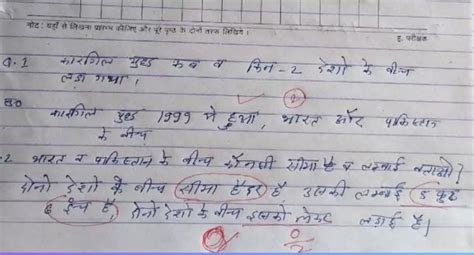 नोट: यहाँ से लिखना प्रारम्भ कीजिए और पूरे पृष्ठ के दोनों तरफ लिखिये। ह. परीक्षक
Q.1 कारगिल युद्ध कब व किन-2 देशो के बीच
लड़ा गया।
उ0 कारगिल युद्ध 1999 मे हुआ, भारत और पाकिस्तान
के बीच
2 भारत व पाकिस्तान के बीच कौनसी सीमा है व लम्बाई बताओ?
दोनो देशो के बीच सीमा हैदर है उसकी लम्बाई 5 फुट
6 इंच है, दोनो देशो के बीच इसको लेकर लड़ाई है।
0